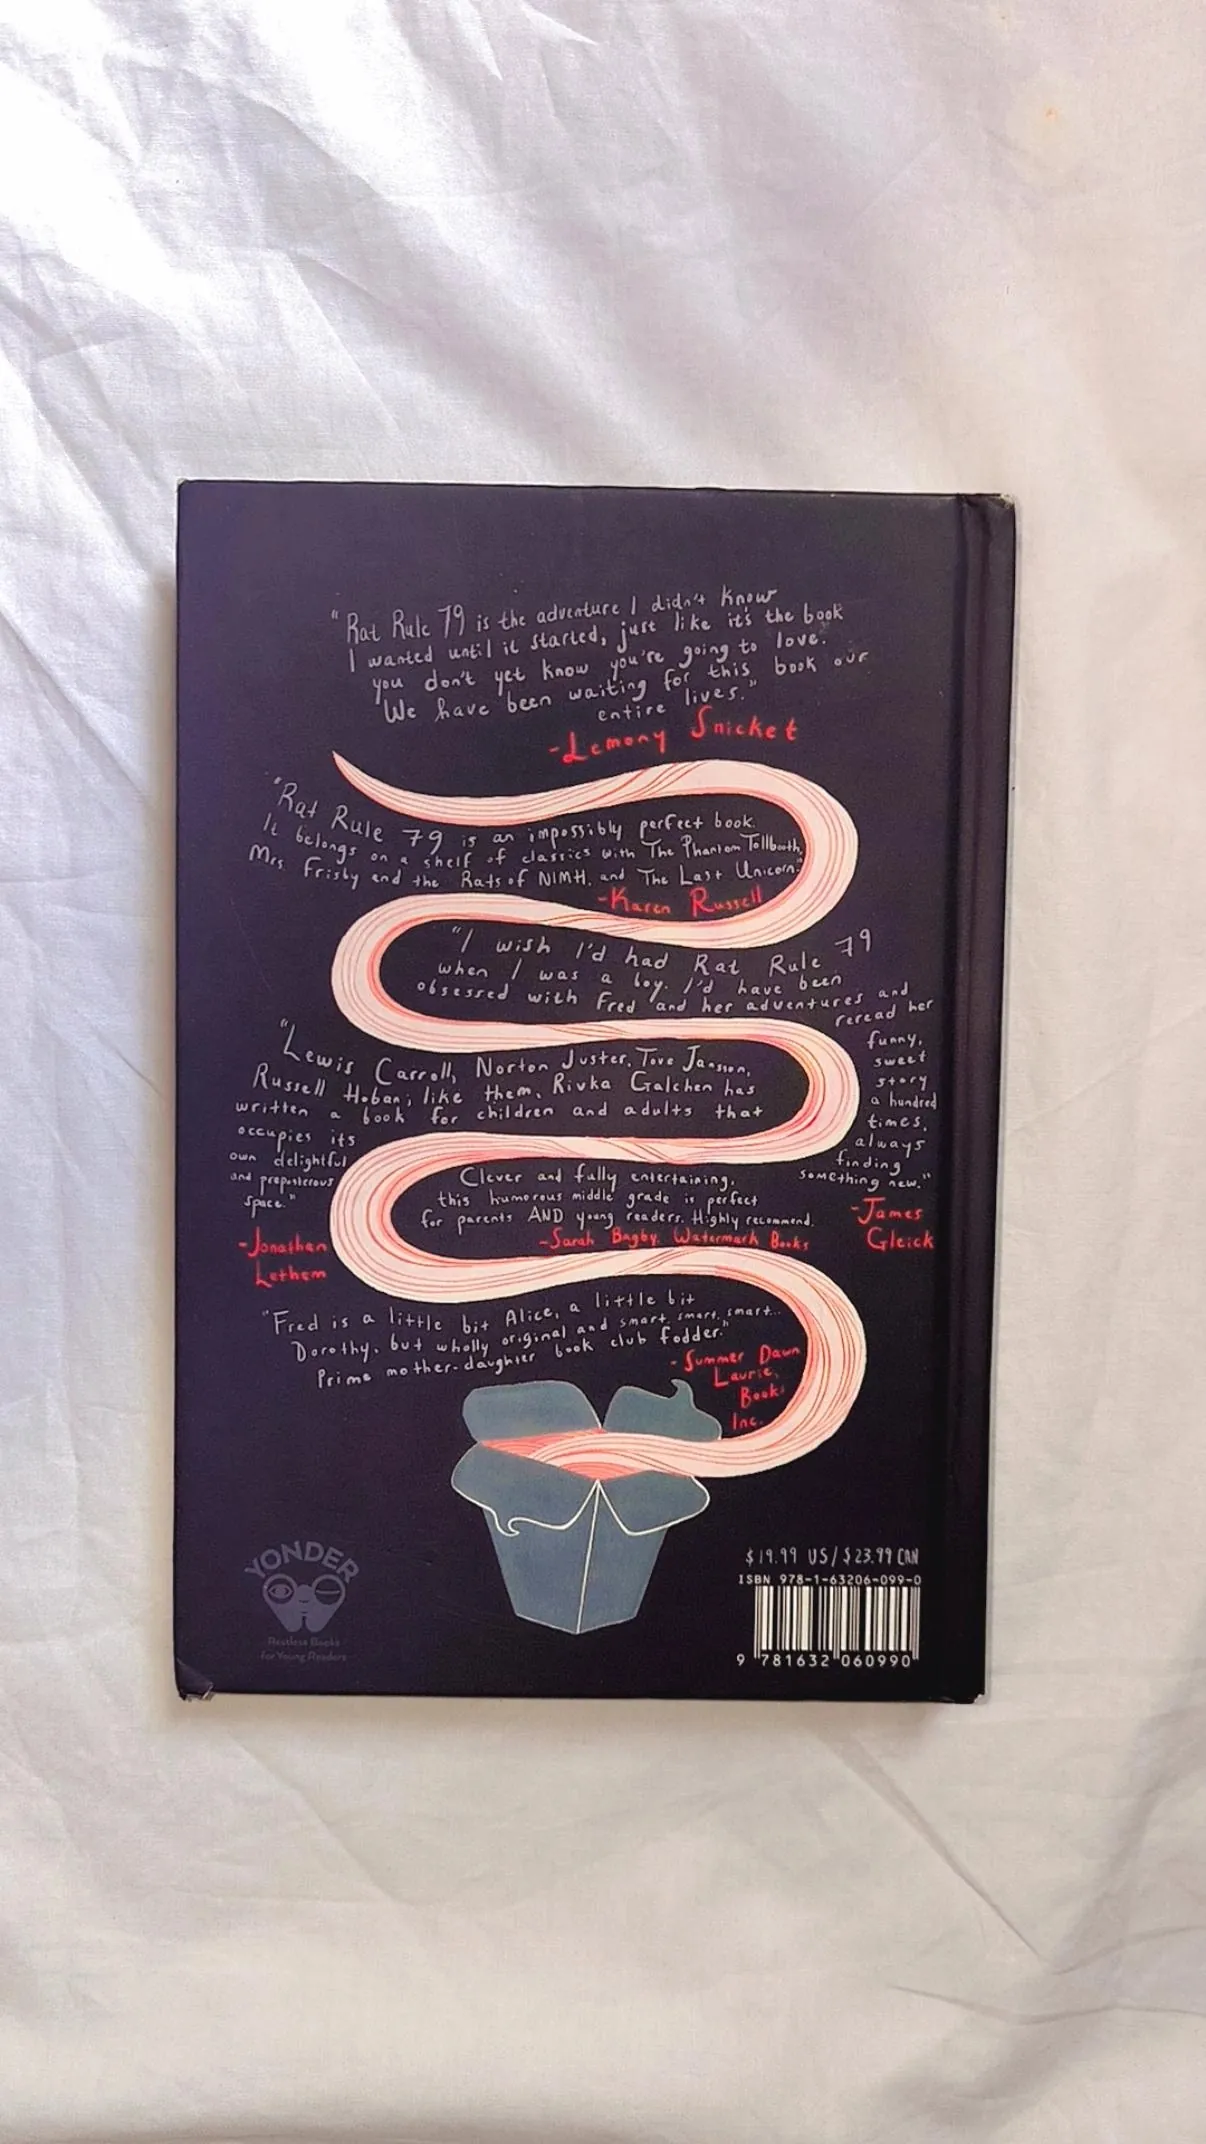 "Rat Rule 79 is the adventure I didn't know
I wanted until it started, just like it's the book
you don't yet know you're going to love.
We have been waiting for this book our
entire lives."
-Lemony Snicket
"Rat Rule 79 is an impossibly perfect book.
It belongs on a shelf of classics with The Phantom Tollbooth,
Mrs. Frisby and the Rats of NIMH, and The Last Unicorn."
-Karen Russell
"I wish I'd had Rat Rule 79
when I was a boy. I'd have been
obsessed with Fred and her adventures and
reread her
funny,
sweet
story
a hundred
times,
always
finding
something new."
-James
Gleick
"Lewis Carroll, Norton Juster, Tove Jansson,
Russell Hoban; like them, Rivka Galchen has
written a book for children and adults that
occupies its
own delightful
and preposterous
space."
-Jonathan
Lethem
Clever and fully entertaining,
this humorous middle grade is perfect
for parents AND young readers. Highly recommend.
-Sarah Bagby, Watermark Books
"Fred is a little bit Alice, a little bit
Dorothy, but wholly original and smart, smart, smart...
Prime mother-daughter book club fodder."
-Summer Dawn
Laurie,
Books
Inc.
YONDER
Restless Books
for Young Readers
$19.99 US/$23.99 CAN
ISBN 978-1-63206-099-0
9 781632 060990